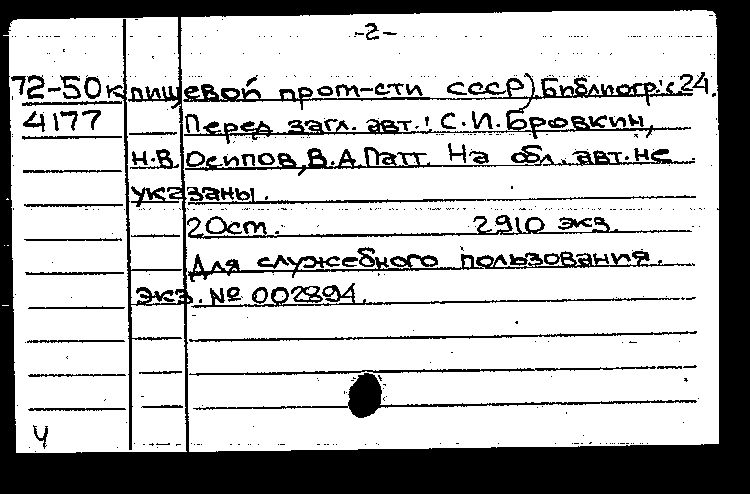 -2-
72-50к пищевой пром-сти СССР) Библиогр: с 24.
4177 Перед загл. авт.: С.И. Бровкин,
Н.В. Осипов, В.А. Патт. На обл. авт. не
указаны.
20 ст. 2910 экз.
Для служебного пользования.
экз. № 002894.
Ч